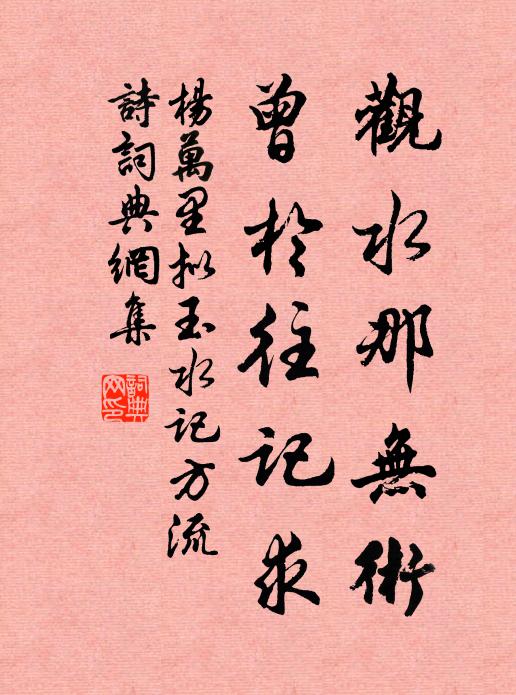 觀水那無術
曾於往記求
楊萬里擬玉水記方流
詩詞典網集
詞典網印